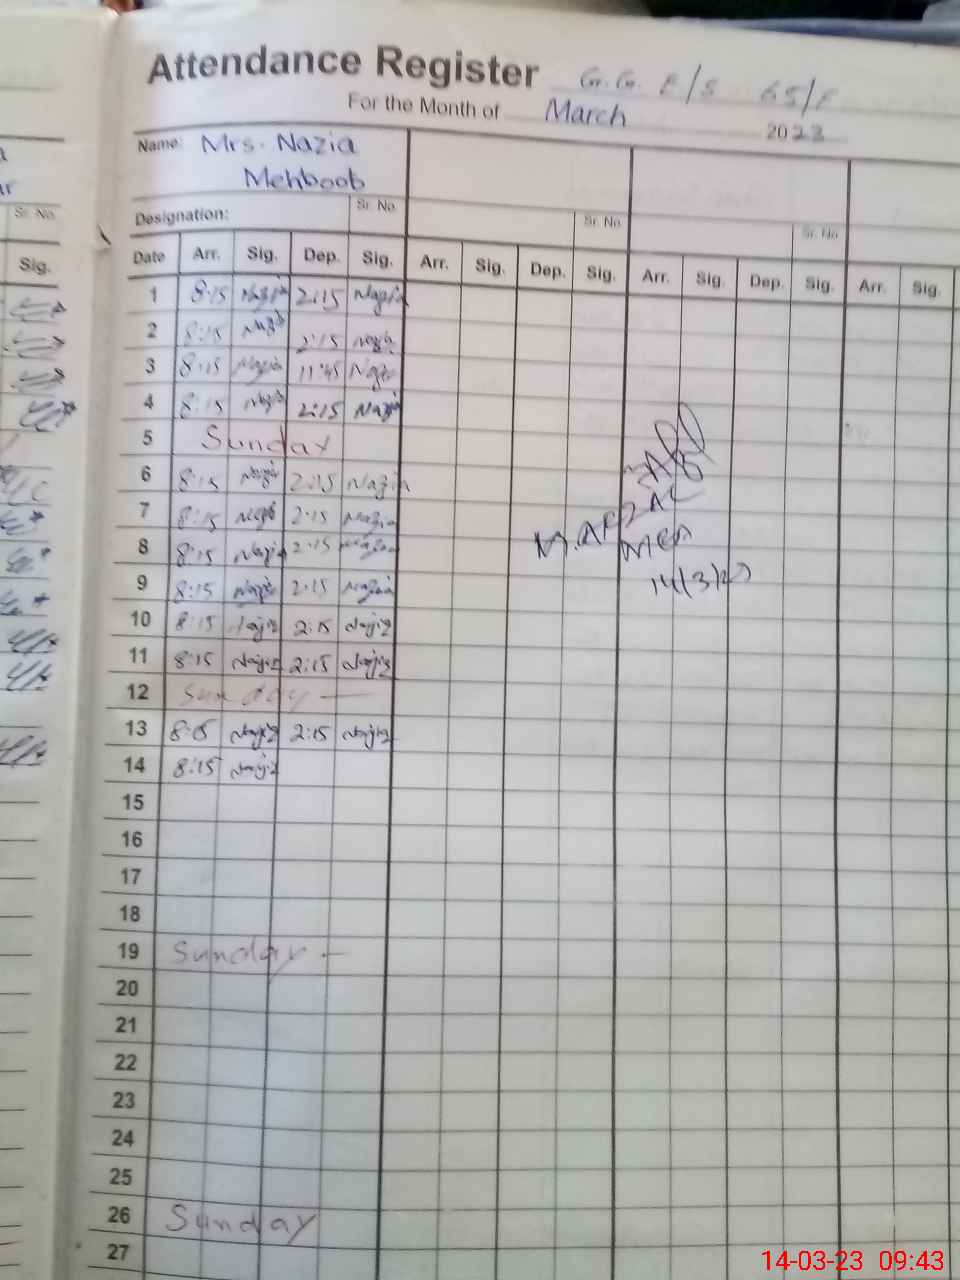 Attendance Register G.G. E/S 65/F
For the Month of March 2023
Name: Mrs. Nazia
Mehboob
Designation: Sr. No. Sr. No. Sr. No.
Sr. No.
Date Arr. Sig. Dep. Sig. Arr. Sig. Dep. Sig. Arr. Sig. Dep. Sig. Arr. Sig.
Sig.
1 8:15 Nazia 2:15 Nazia
2 8:15 Nazia 2:15 Nazia
3 8:15 Nazia 11:45 Nazia
4 8:15 Nazia 2:15 Nazia
5 Sunday
6 8:15 Nazia 2:15 Nazia
7 8:15 Nazia 2:15 Nazia
8 8:15 Nazia 2:15 Nazia
9 8:15 Nazia 2:15 Nazia
10 8:15 Nazia 2:15 Nazia
11 8:15 Nazia 2:15 Nazia
12 Sunday
13 8:15 Nazia 2:15 Nazia
14 8:15 Nazia
15
16
17
18
19 Sunday
20
21
22
23
24
25
26 Sunday
27
MEA
14/3/23
14-03-23 09:43